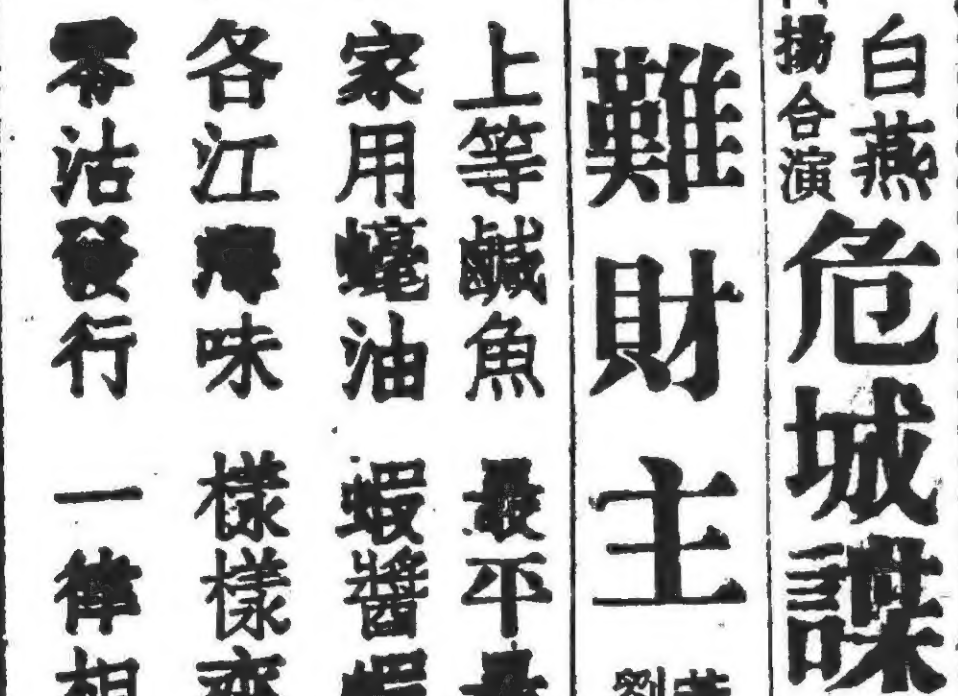 白燕
揚合演
危城諜
難財主
上等鹹魚 最平
家用蠔油 蝦醬蝦
各江海味 樣樣齊
零沽發行 一律相